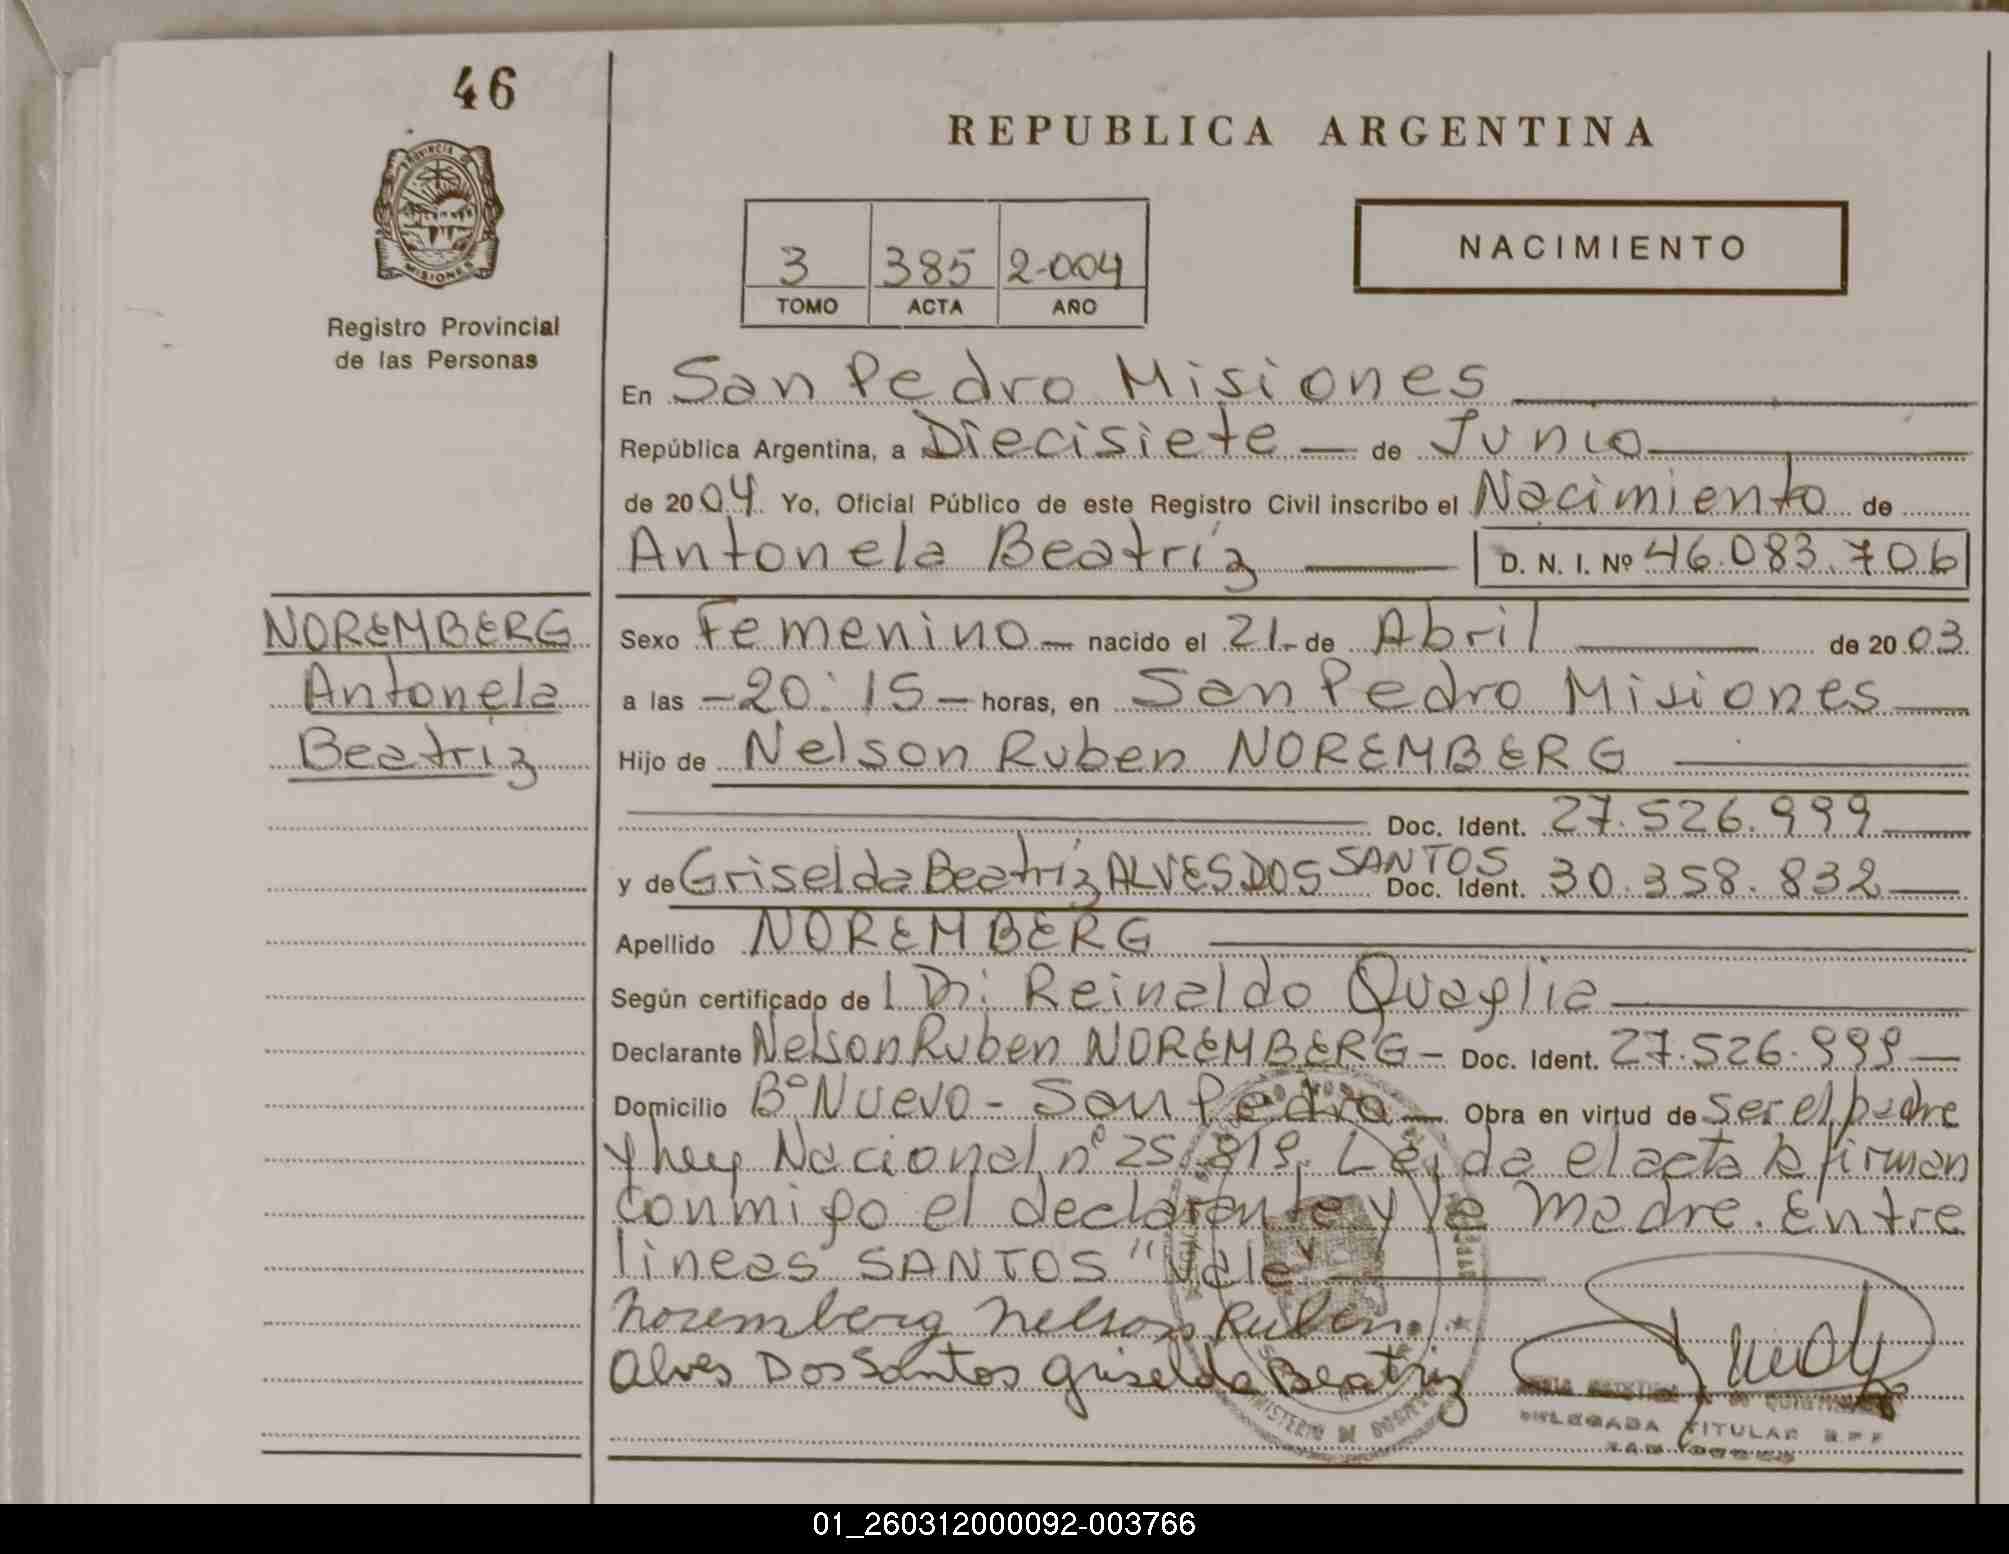 46
REPUBLICA ARGENTINA
PROVINCIA DE
MISIONES
Registro Provincial
de las Personas
3 385 2.004
TOMO ACTA AÑO
NACIMIENTO
En San Pedro Misiones
República Argentina, a Diecisiete — de Junio
de 2004 Yo, Oficial Público de este Registro Civil inscribo el Nacimiento de
Antonela Beatríz — D. N. I. Nº 46.083.706
NOREMBERG
Antonela
Beatríz
Sexo Femenino — nacido el 21 - de Abril — de 2003.
a las - 20:15 — horas, en San Pedro Misiones —
Hijo de Nelson Ruben NOREMBERG
Doc. Ident. 27.526.999 —
y de Griselda Beatríz ALVES DOS SANTOS Doc. Ident. 30.358.832 —
Apellido NOREMBERG
Según certificado de 1 Dr: Reinaldo Quaglia
Declarante Nelson Ruben NOREMBERG — Doc. Ident. 27.526.999 —
Domicilio Bº Nuevo - San Pedro — Obra en virtud de ser el padre
y Ley Nacional nº 25.819. Leída el acta la firman
conmigo el declarante y la madre. Entre
lineas SANTOS "Vale"
Noremberg Nelson Ruben.
Alves Dos Santos Griselda Beatriz
DELEGADA TITULAR R.P.P.
SAN PEDRO
01_260312000092-003766